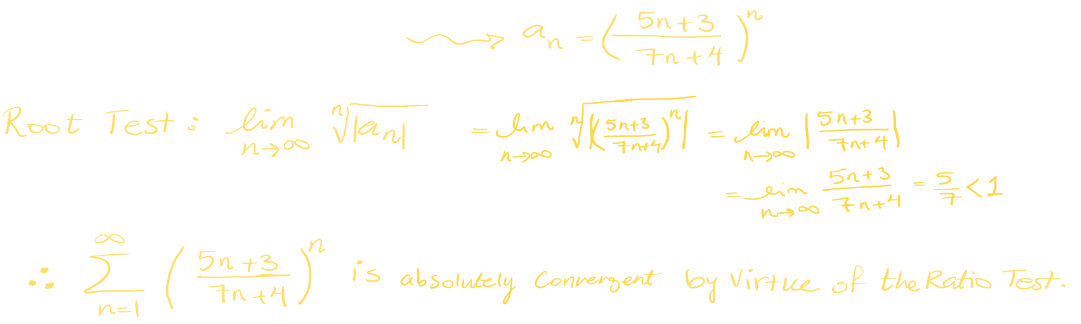 ⇝ aₙ = ((5n+3)/(7n+4))ⁿ
Root Test: lim_{n→∞} ⁿ√|aₙ| = lim_{n→∞} ⁿ√|((5n+3)/(7n+4))ⁿ| = lim_{n→∞} |(5n+3)/(7n+4)|
= lim_{n→∞} (5n+3)/(7n+4) = 5/7 < 1
∴ ∑_{n=1}^{∞} ((5n+3)/(7n+4))ⁿ is absolutely convergent by virtue of the Ratio Test.